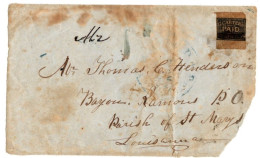 Mr
PAID
Mr Thomas C Henderson
Bayou Ramous P.O.
Parish of St Marys
Louisiana